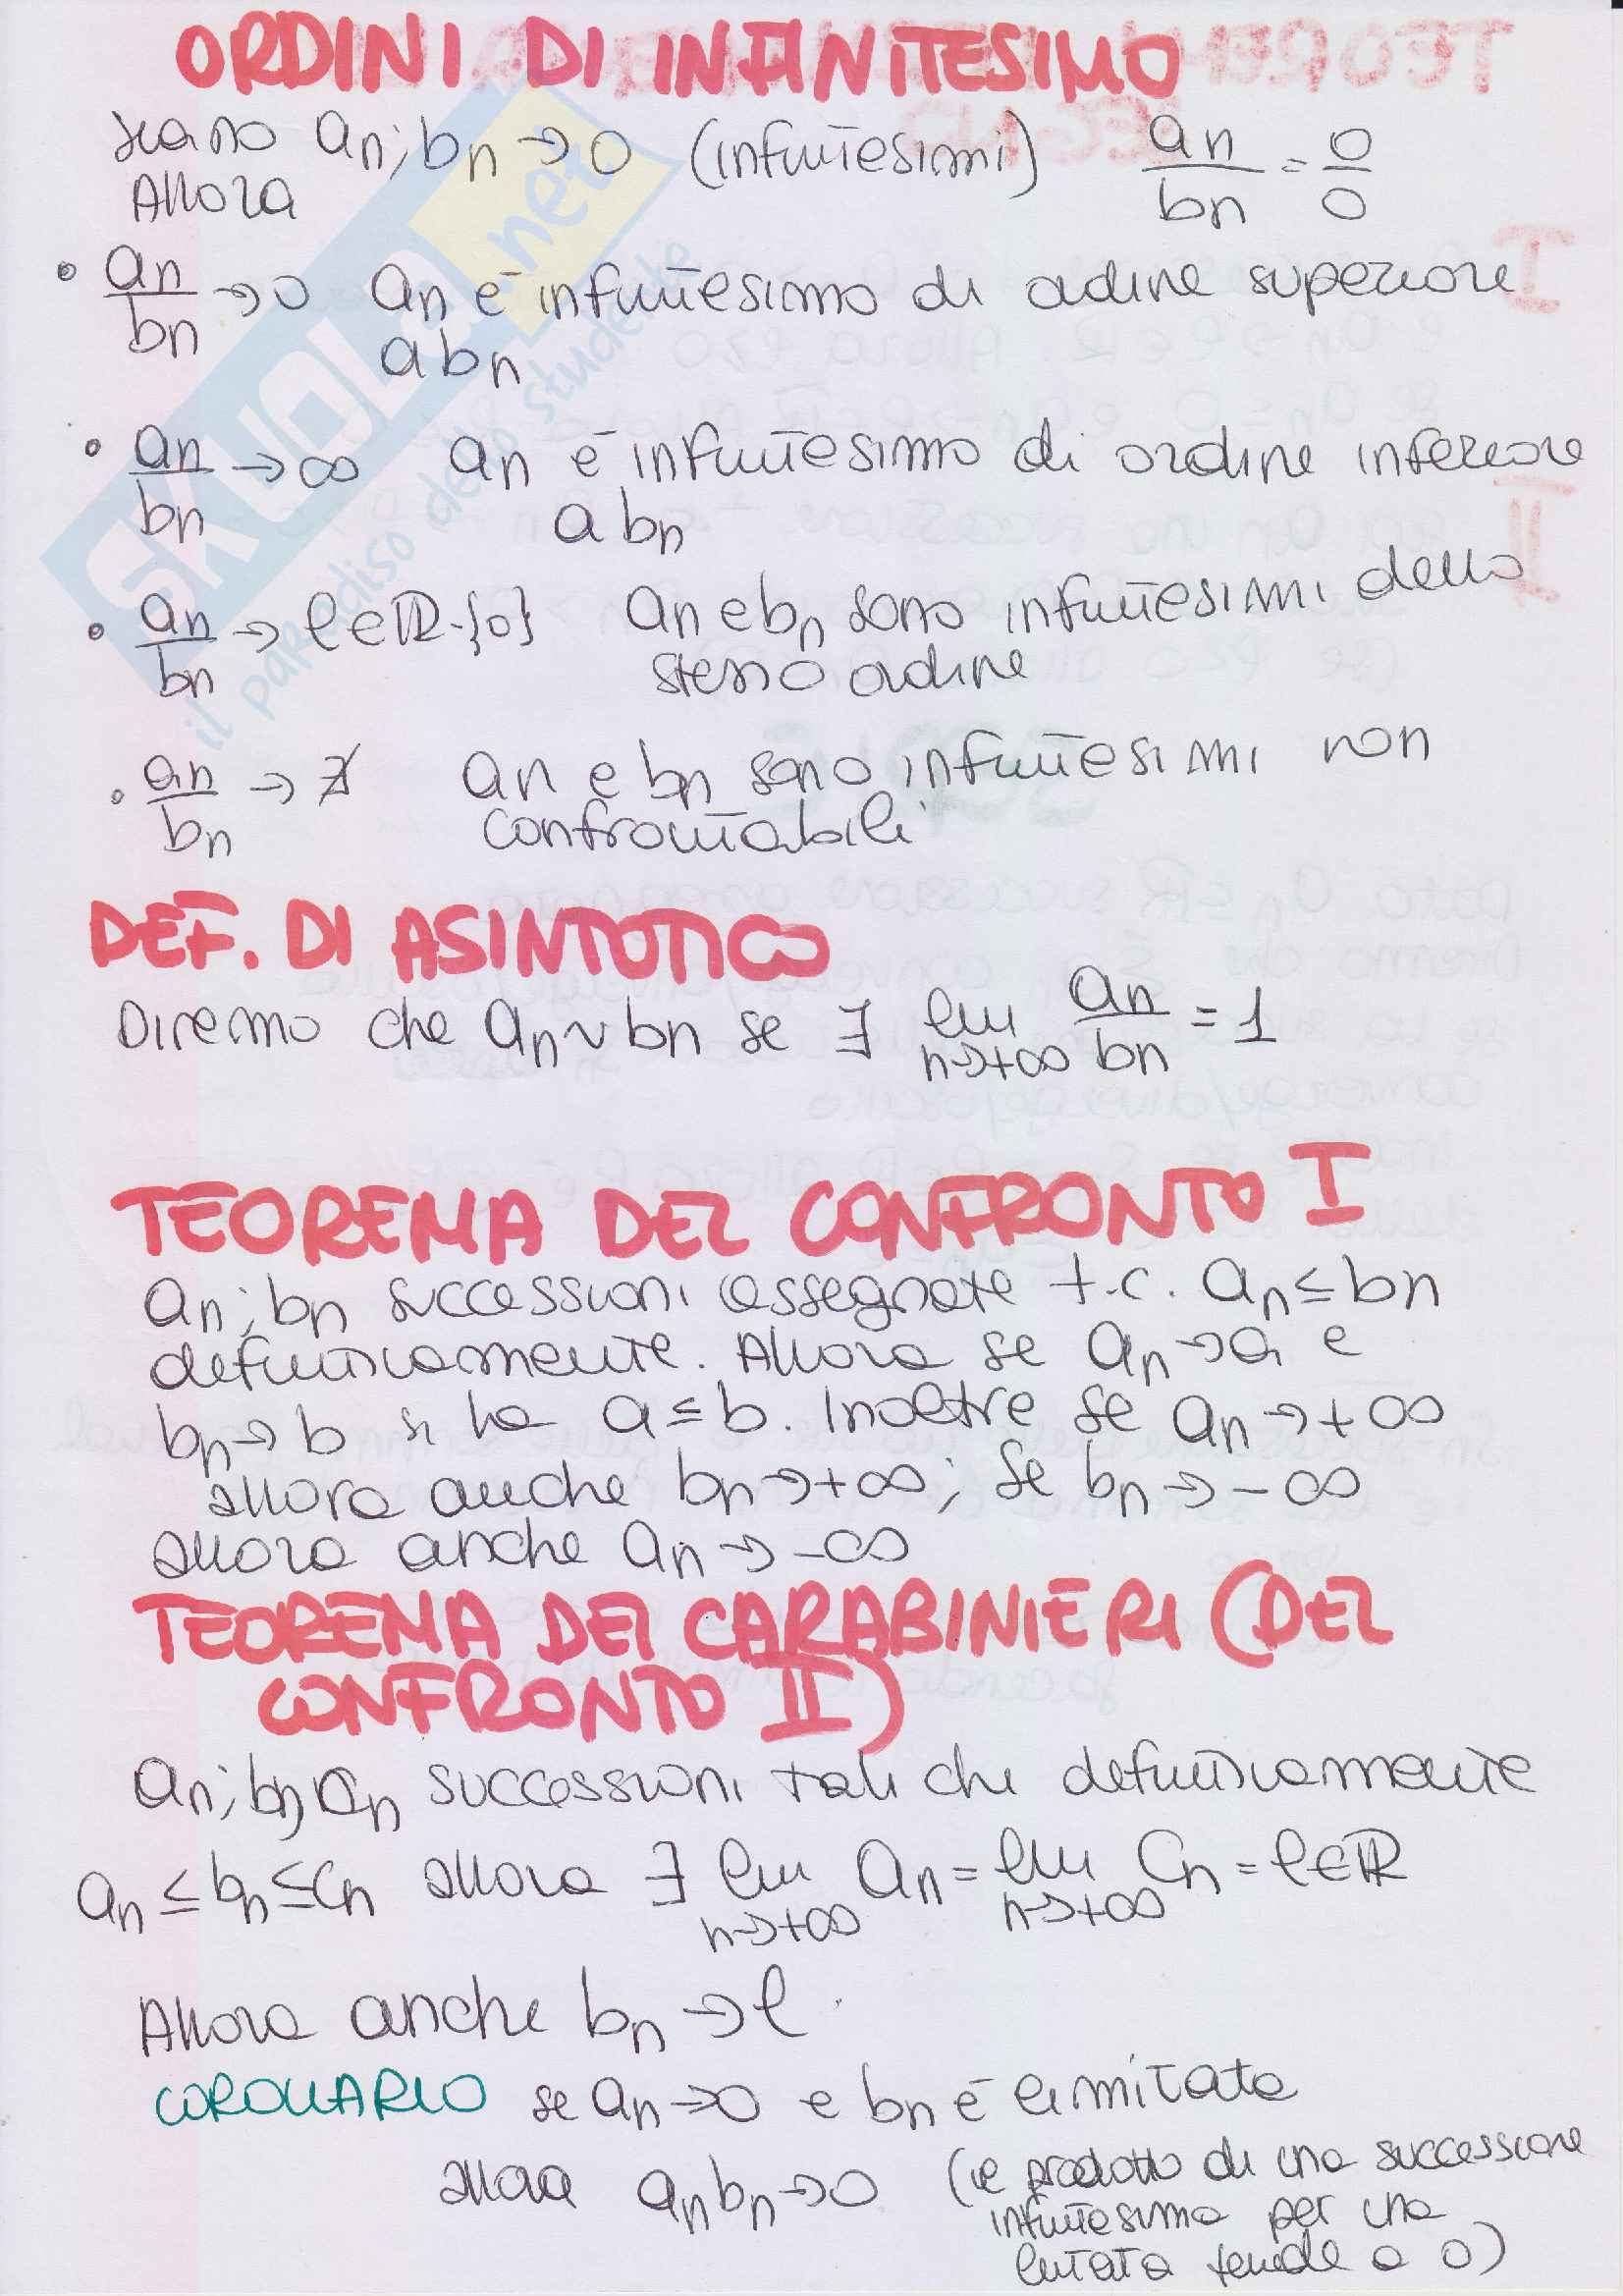 ORDINI DI INFINITESIMO
siano an; bn → 0 (infinitesimi) an/bn = 0/0
Allora
• an/bn → 0 an è infinitesimo di ordine superiore
a bn
• an/bn → ∞ an è infinitesimo di ordine inferiore
a bn
• an/bn → l∈ℝ-{0} an e bn sono infinitesimi dello
stesso ordine
• an/bn → ∄ an e bn sono infinitesimi non
confrontabili
DEF. DI ASINTOTICO
Diremo che an ~ bn se ∃ lim n→+∞ an/bn = 1
TEOREMA DEL CONFRONTO I
an; bn successioni assegnate t.c. an ≤ bn
definitivamente. Allora se an → a e
bn → b si ha a ≤ b. Inoltre se an → +∞
allora anche bn → +∞; se bn → -∞
allora anche an → -∞
TEOREMA DEI CARABINIERI (DEL
CONFRONTO II)
an; bn; cn successioni tali che definitivamente
an ≤ bn ≤ cn allora ∃ lim n→+∞ an = lim n→+∞ cn = l∈ℝ
Allora anche bn → l.
COROLLARIO se an → 0 e bn è limitata
allora an bn → 0 (il prodotto di una successione
infinitesima per una
limitata tende a 0)
SKUOLA.net
il paradiso dello studente